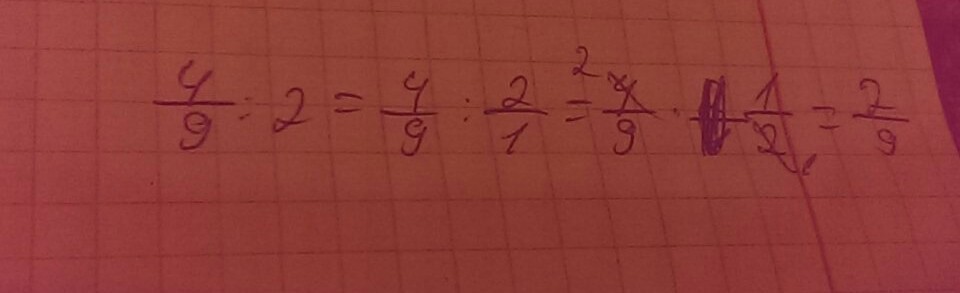 4/9 : 2 = 4/9 : 2/1 = 2 4/9 · 1/2 1 = 2/9